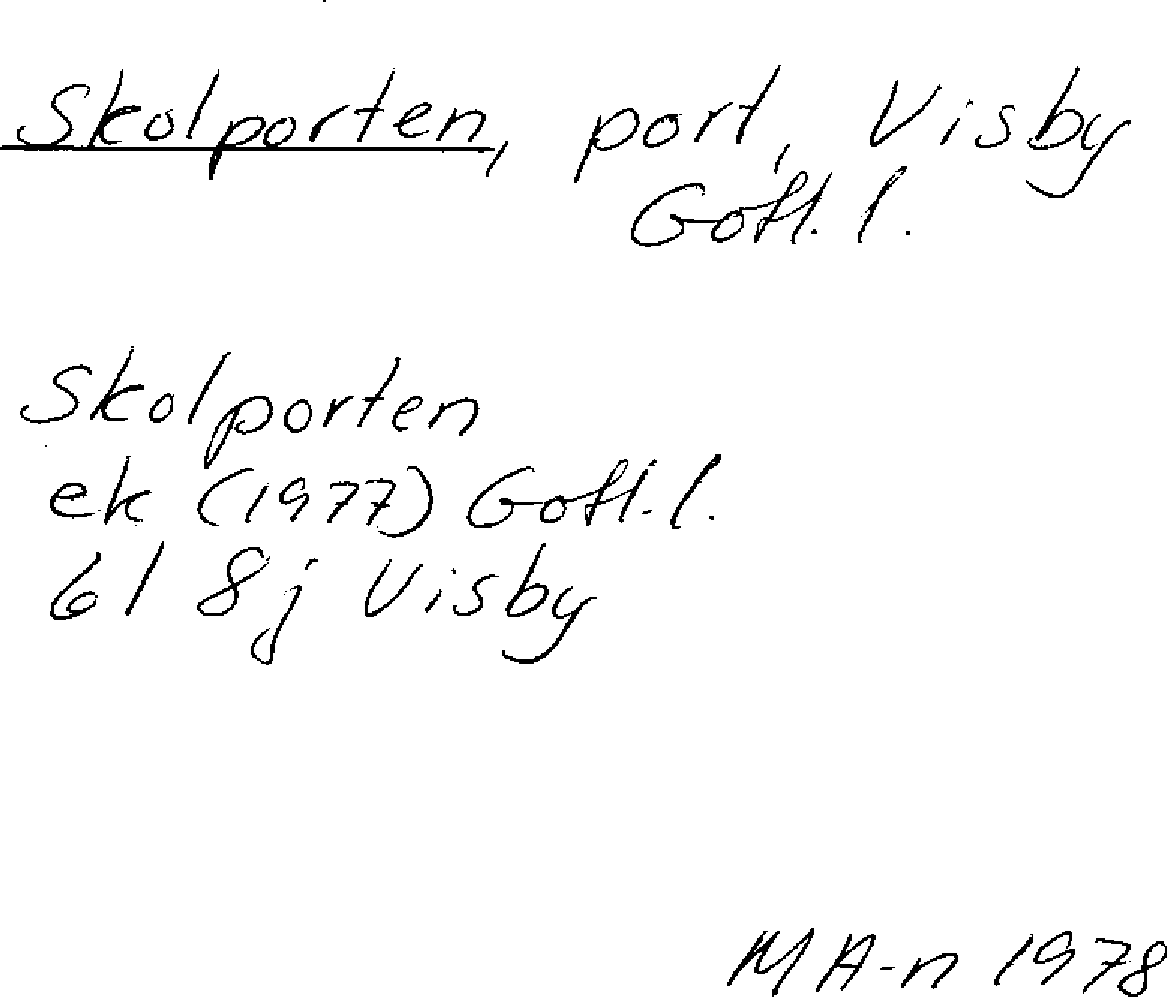 Skolporten, port, Visby
Gotl. l.
Skolporten
ek (1977) Gotl. l.
6I 8j Visby
MA-n 1978